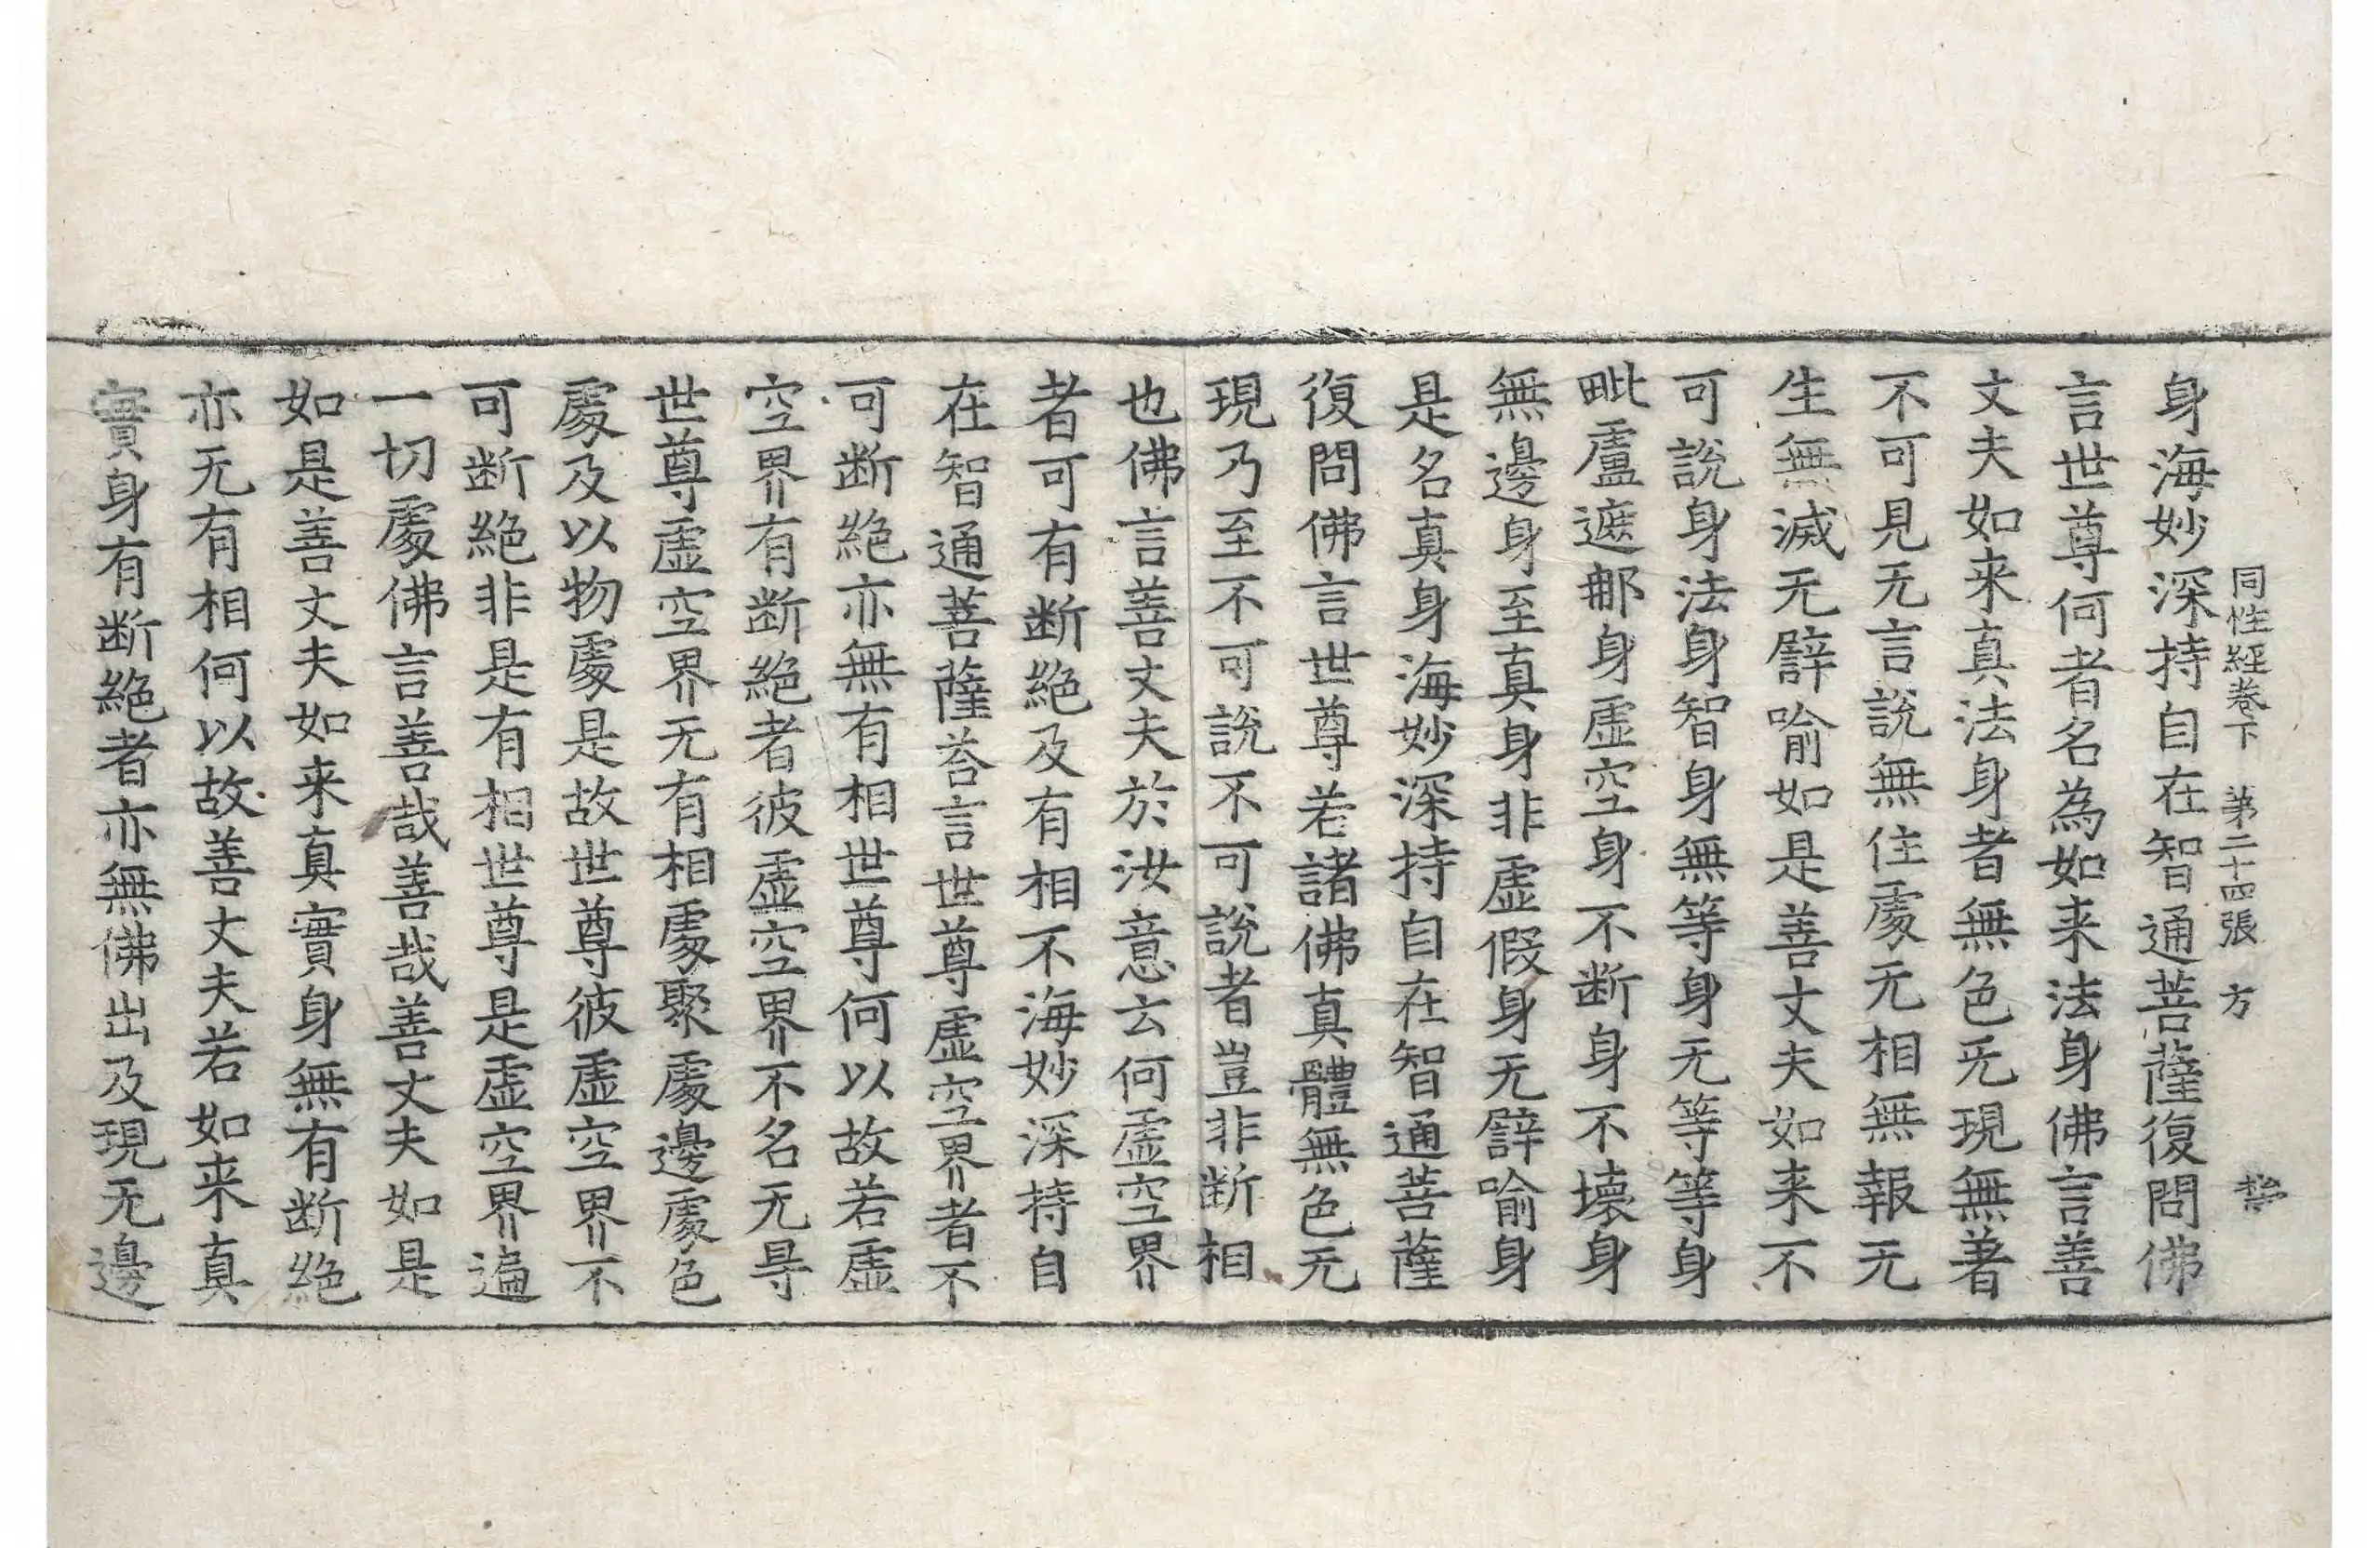 同性経巻下 第二十四張 方
身海妙深持自在智通菩薩復問佛
言世尊何者名為如来法身佛言善
丈夫如来真法身者無色旡現無著
不可見无言說無住處无相無報无
生無滅无譬喻如是善丈夫如来不
可說身法身智身無等身无等等身
毗盧遮那身虛空身不断身不壊身
無邊身至真身非虛假身无譬喻身
是名真身海妙深持自在智通菩薩
復問佛言世尊若諸佛真體無色无
現乃至不可說不可說者豈非断相
也佛言善丈夫於汝意云何虛空界
者可有断絕及有相不海妙深持自
在智通菩薩荅言世尊虛空界者不
可断絕亦無有相世尊何以故若虛
空界有断絕者彼虛空界不名无㝵
世尊虛空界无有相處聚處邊處色
處及以物處是故世尊彼虛空界不
可断絕非是有相世尊是虛空界遍
一切處佛言善哉善哉善丈夫如是
如是善丈夫如来真實身無有断絕
亦无有相何以故善丈夫若如来真
實身有断絕者亦無佛出及現无邊